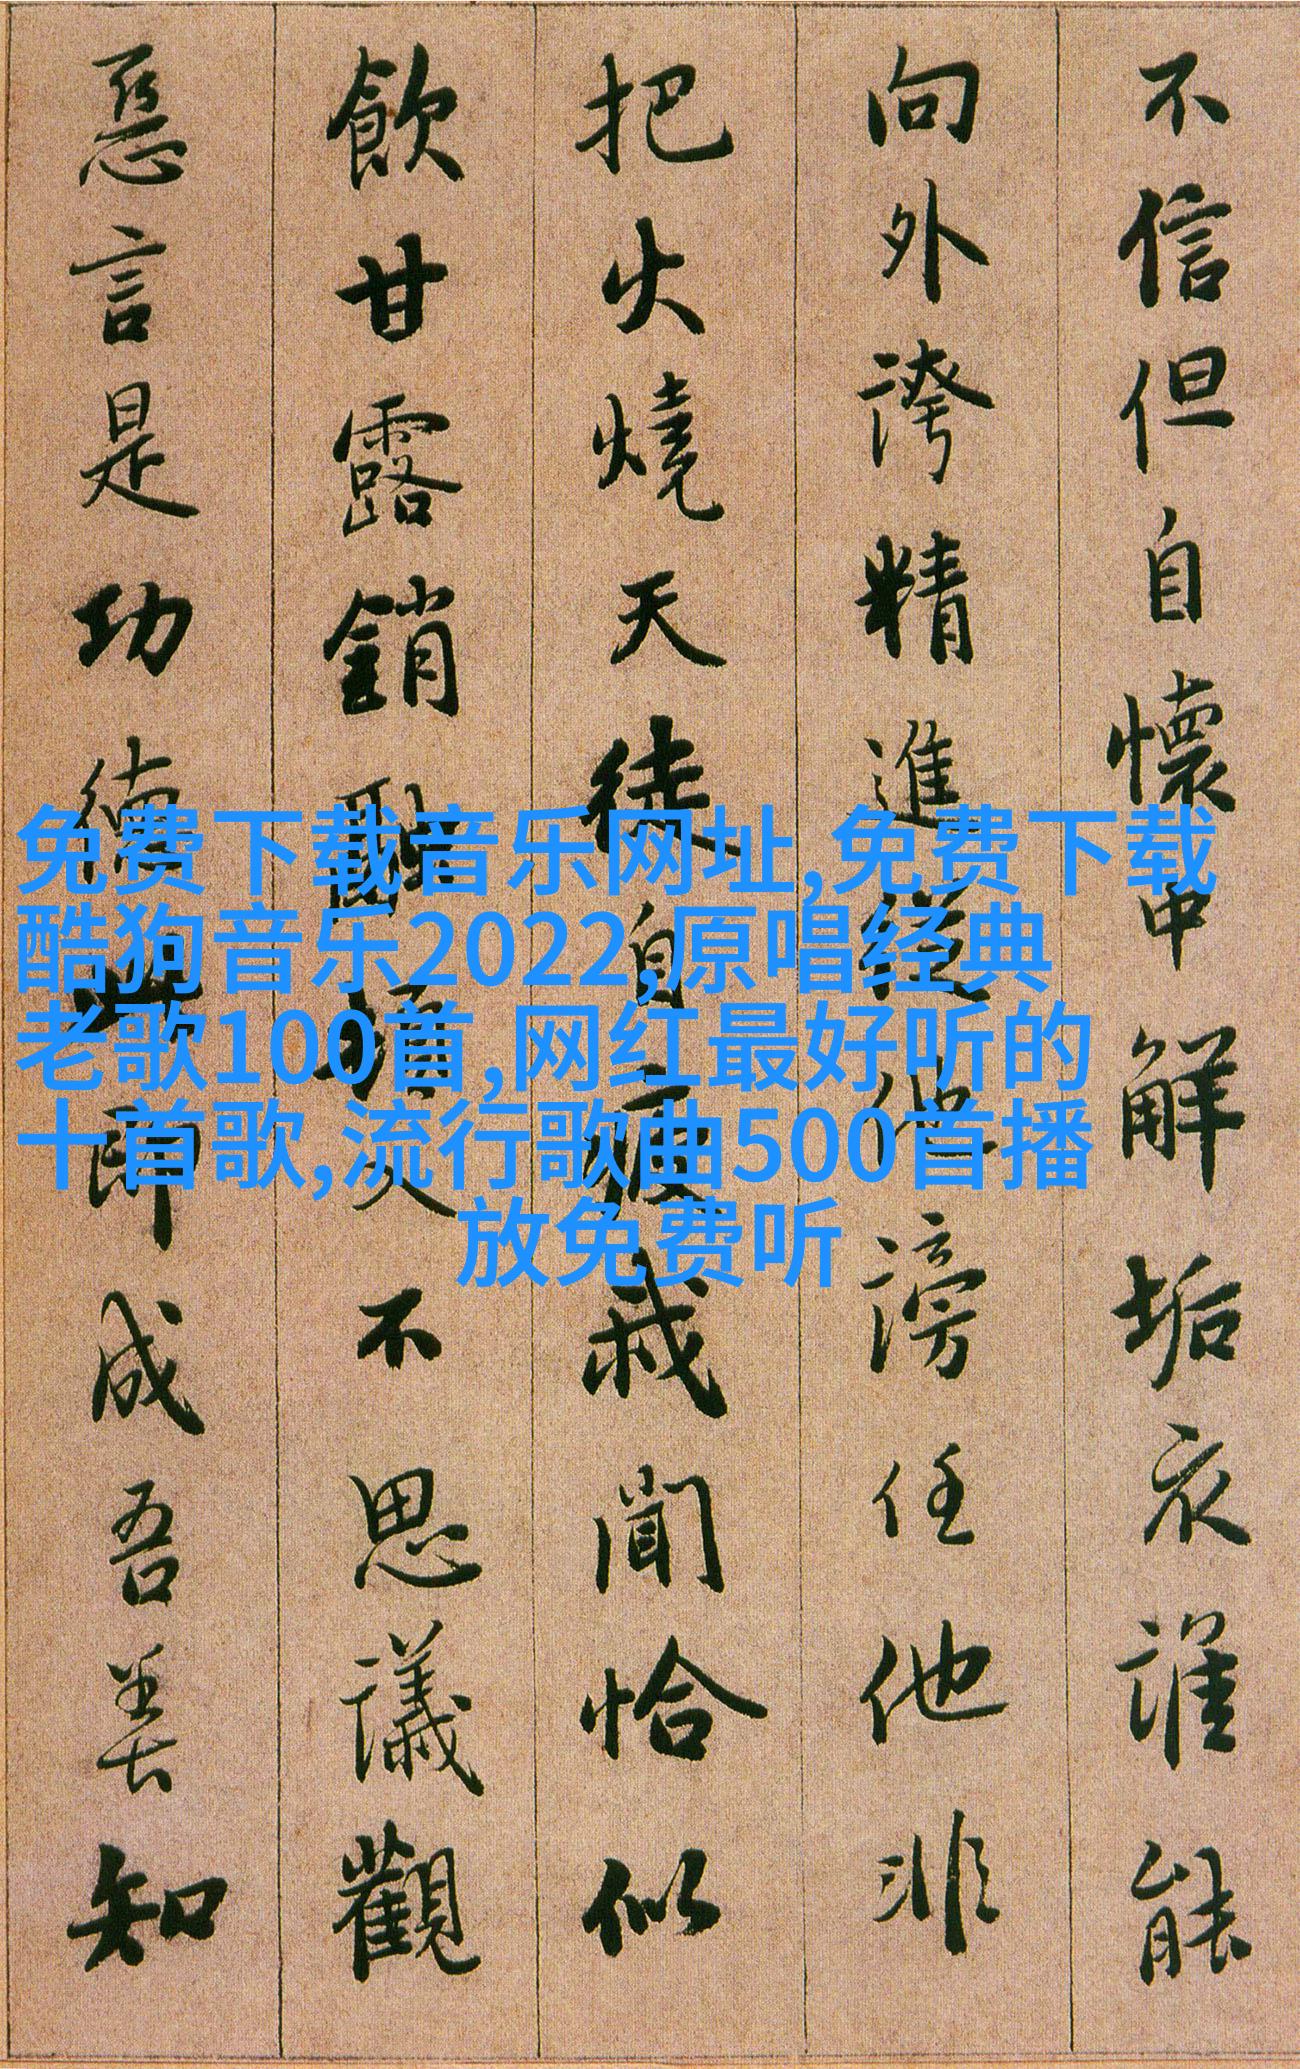 不信但自懷中解垢衣誰能
向外誇精進從他謗任他非
把火燒天徒自疲我聞恰似
飲甘露銷融入不思議觀
惡言是功德此即成吾善知
免费下载音乐网址,免费下载
酷狗音乐2022,原唱经典
老歌100首,网红最好听的
十首歌,流行歌曲500首播
放免费听